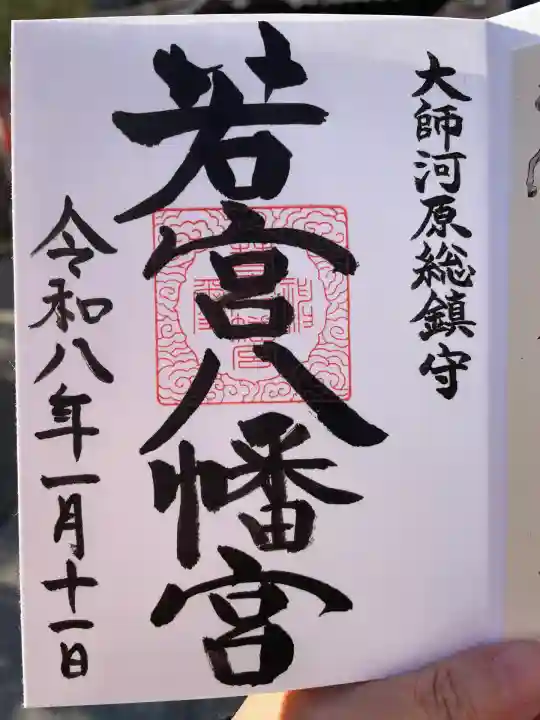 大師河原総鎮守
若宮八幡宮
令和八年一月十一日